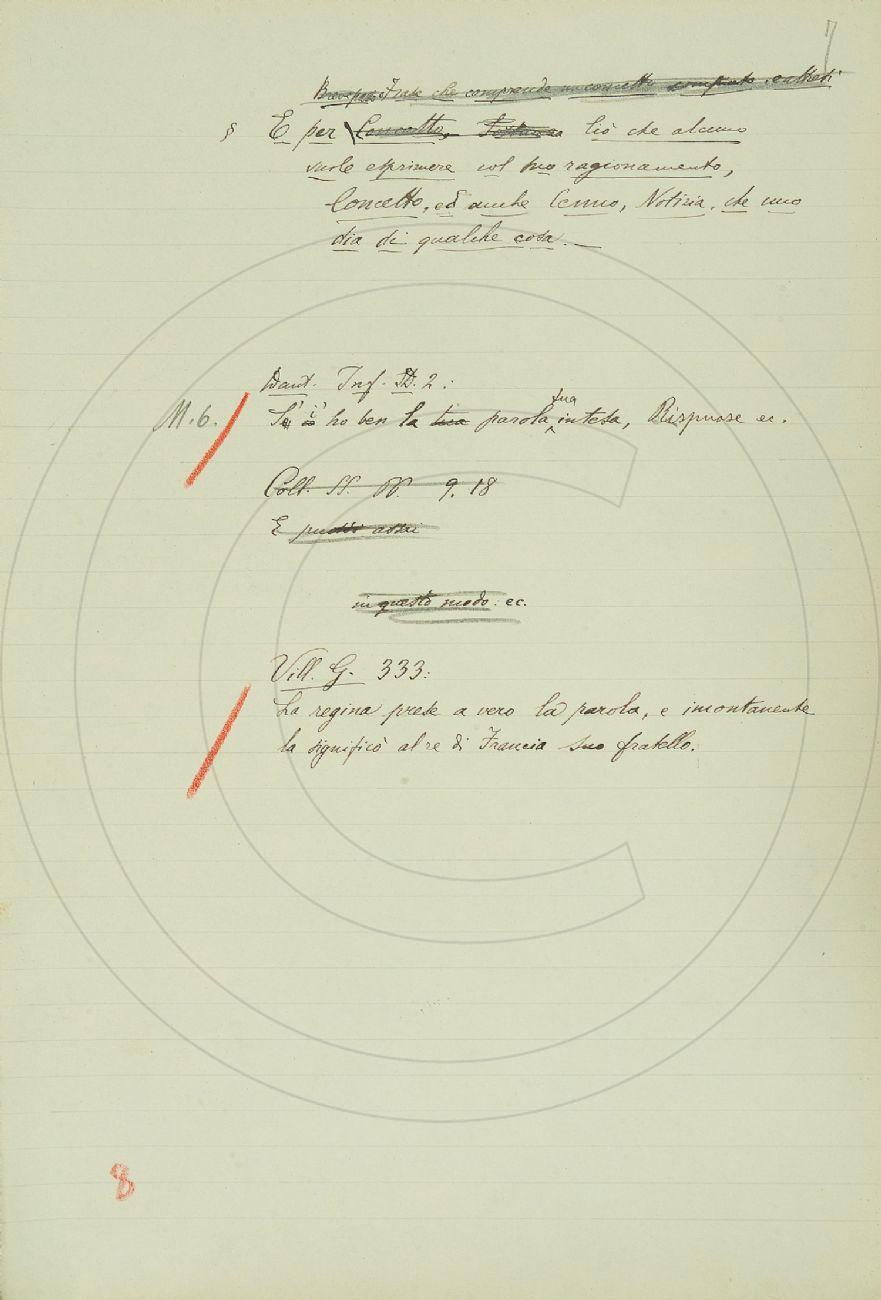 7
Frase che comprende un concetto compiuto
§ E per Concetto, Sostanza Ciò che alcuno
vuole esprimere col suo ragionamento,
Concetto, ed anche Cenno, Notizia, che uno
dia di qualche cosa.
Dant. Inf. 2:
M. 6. S' i' ho ben la tua parola sua intesa, Rispuose ec.
Coll. SS. PP. 9. 18
E assai
in questo modo: ec.
Vill. G. 333:
La regina prese a vero la parola, e imontanente
la significò al re di Francia suo fratello.
8